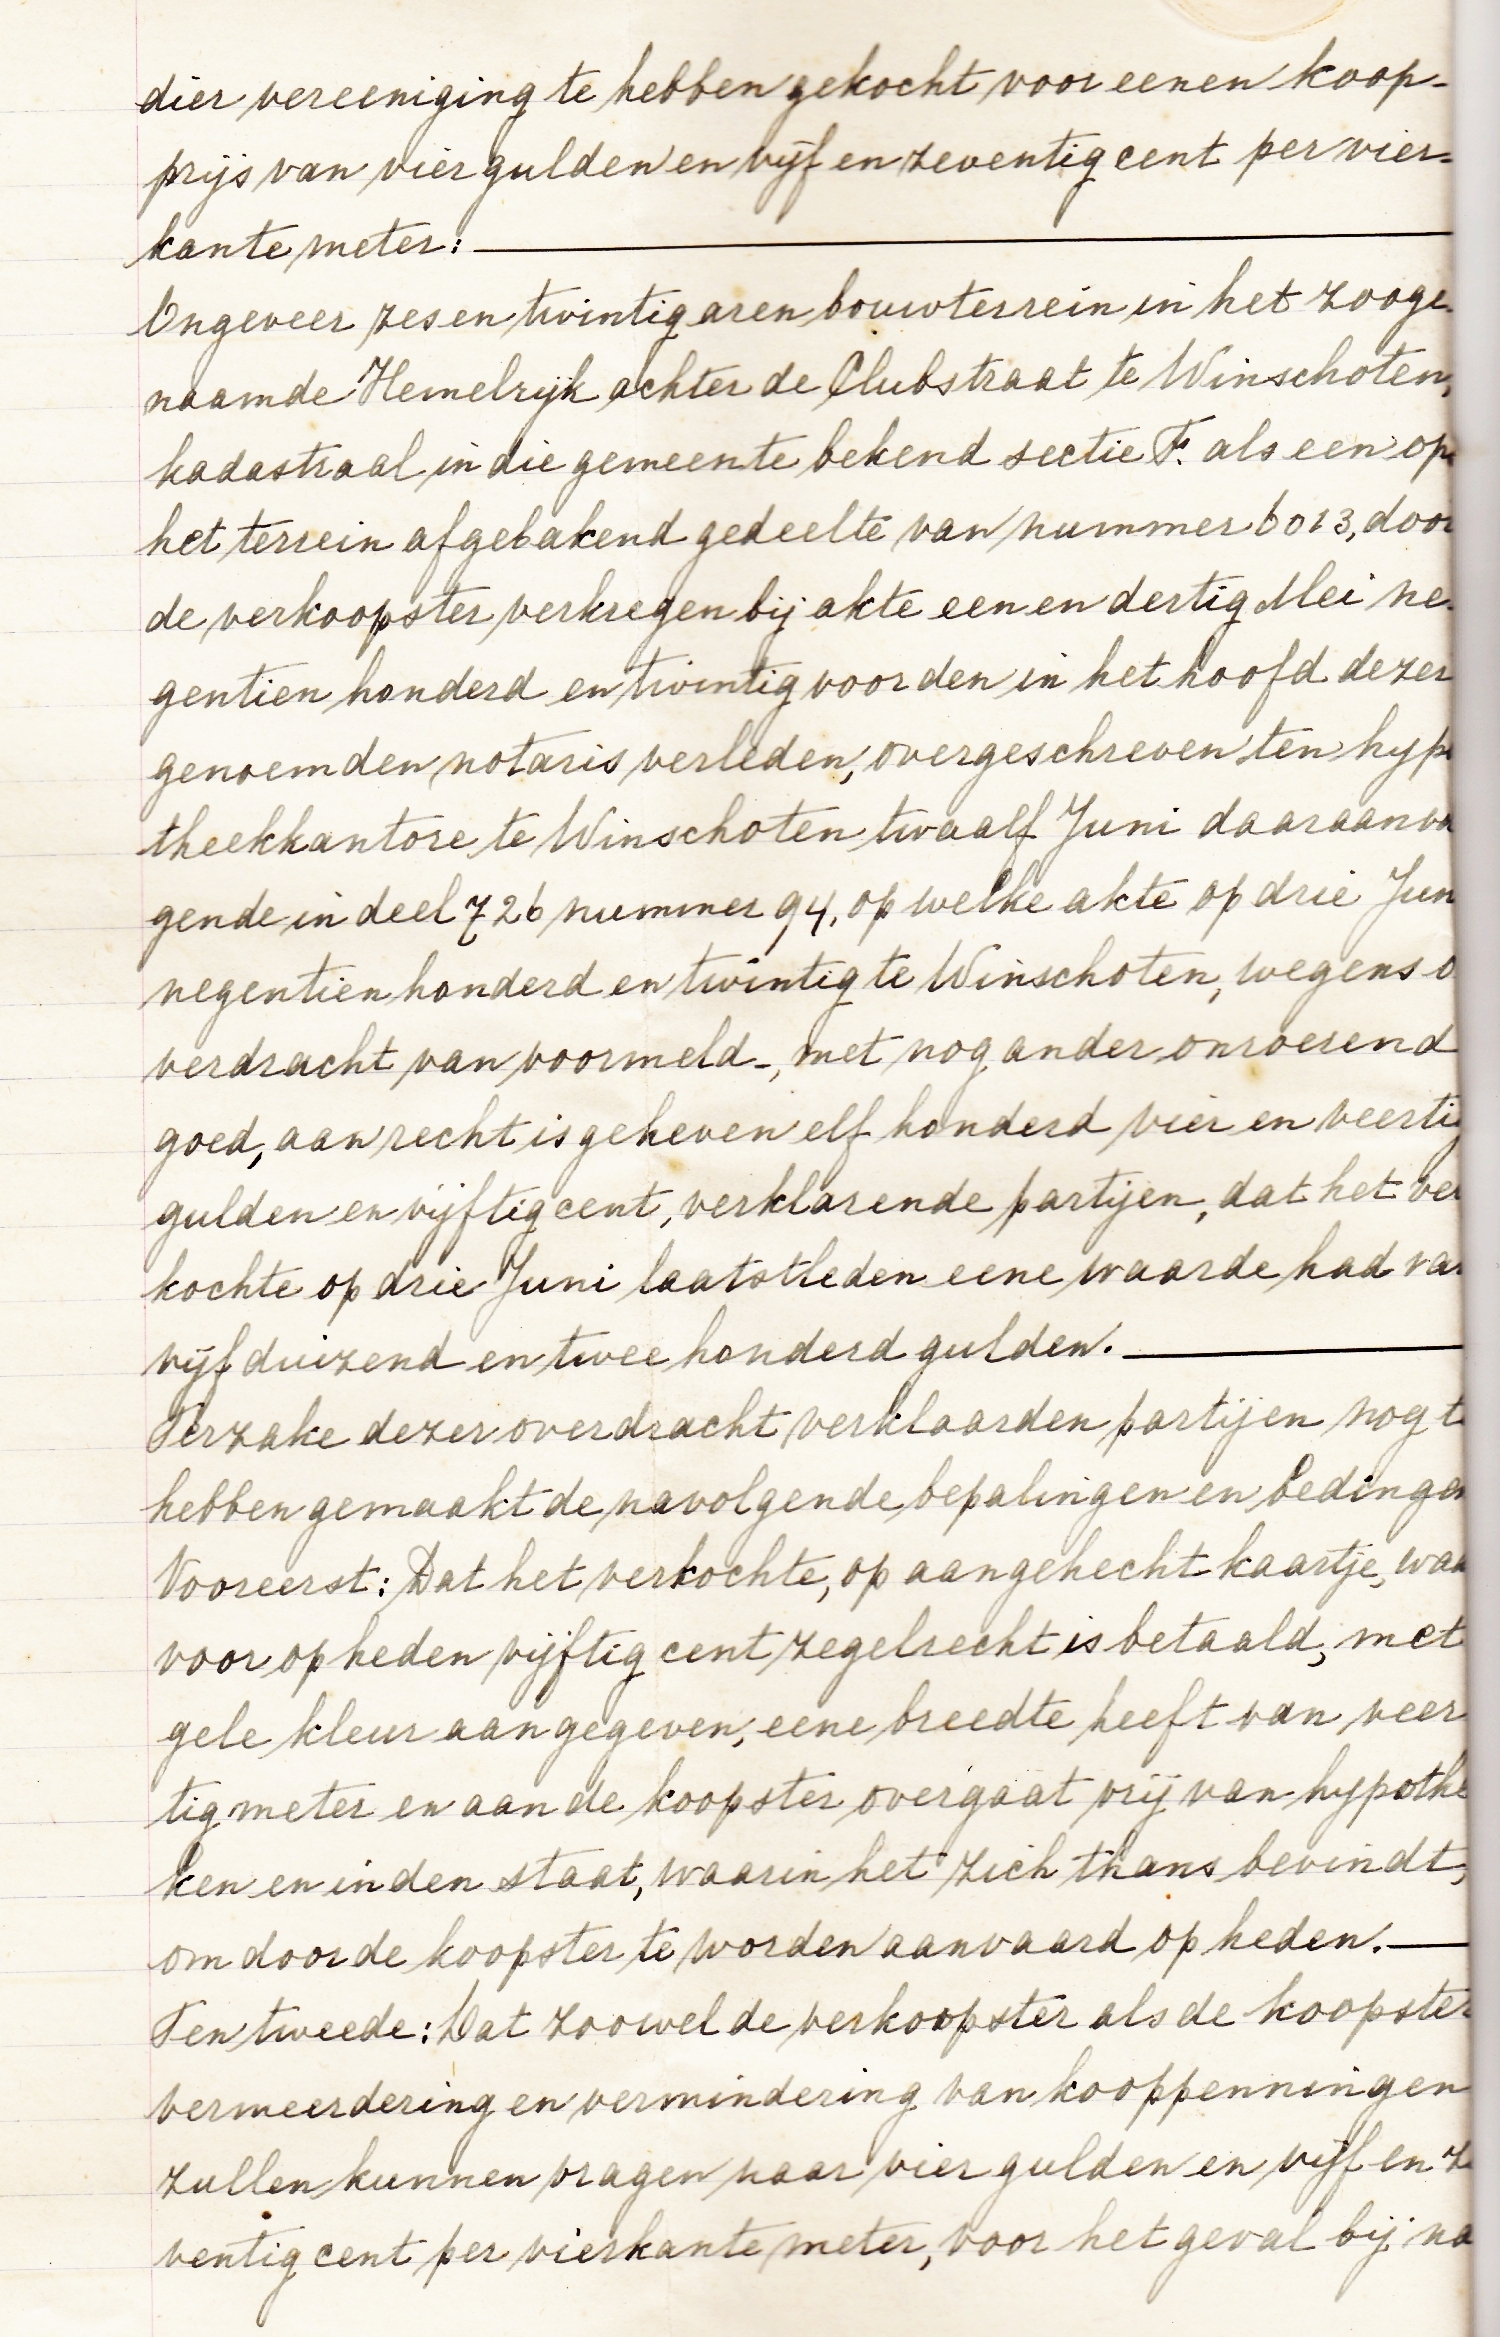 dier vereeniging te hebben gekocht voor eenen koop-
prijs van vier gulden en vijf en zeventig cent per vier-
kante meter:
Ongeveer zes en twintig aren bouwterrein in het zooge-
naamde Hemelrijk achter de Clubstraat te Winschoten,
kadastraal in die gemeente bekend sectie F. als een op
het terrein afgebakend gedeelte van nummer 6013, door
de verkoopster verkregen bij akte een en dertig Mei ne-
gentien honderd en twintig voor den in het hoofd dezer
genoemden notaris verleden, overgeschreven ten hypo
theekkantore te Winschoten twaalf Juni daaraanvo
gende in deel 726 nummer 94, op welke akte op drie Jun
negentien honderd en twintig te Winschoten, wegens o
verdracht van voormeld-, met nog ander onroerend
goed, aan recht is geheven elf honderd vier en veertig
gulden en vijftig cent, verklarende partijen, dat het ver
kochte op drie Juni laatstleden eene waarde had van
vijf duizend en twee honderd gulden.
Terzake dezer overdracht verklaarden partijen nog te
hebben gemaakt de navolgende bepalingen en bedingen
Vooreerst: Dat het verkochte, op aangehecht kaartje, waar
voor op heden vijftig cent zegelrecht is betaald, met
gele kleur aangegeven, eene breedte heeft van veer
tig meter en aan de koopster overgaat vrij van hypothe
ken en in den staat, waarin het zich thans bevindt,
om door de koopster te worden aanvaard op heden.
Ten tweede: Dat zoowel de verkoopster als de koopster
vermeerdering en vermindering van kooppenningen
zullen kunnen vragen naar vier gulden en vijf en ze
ventig cent per vierkante meter, voor het geval bij na